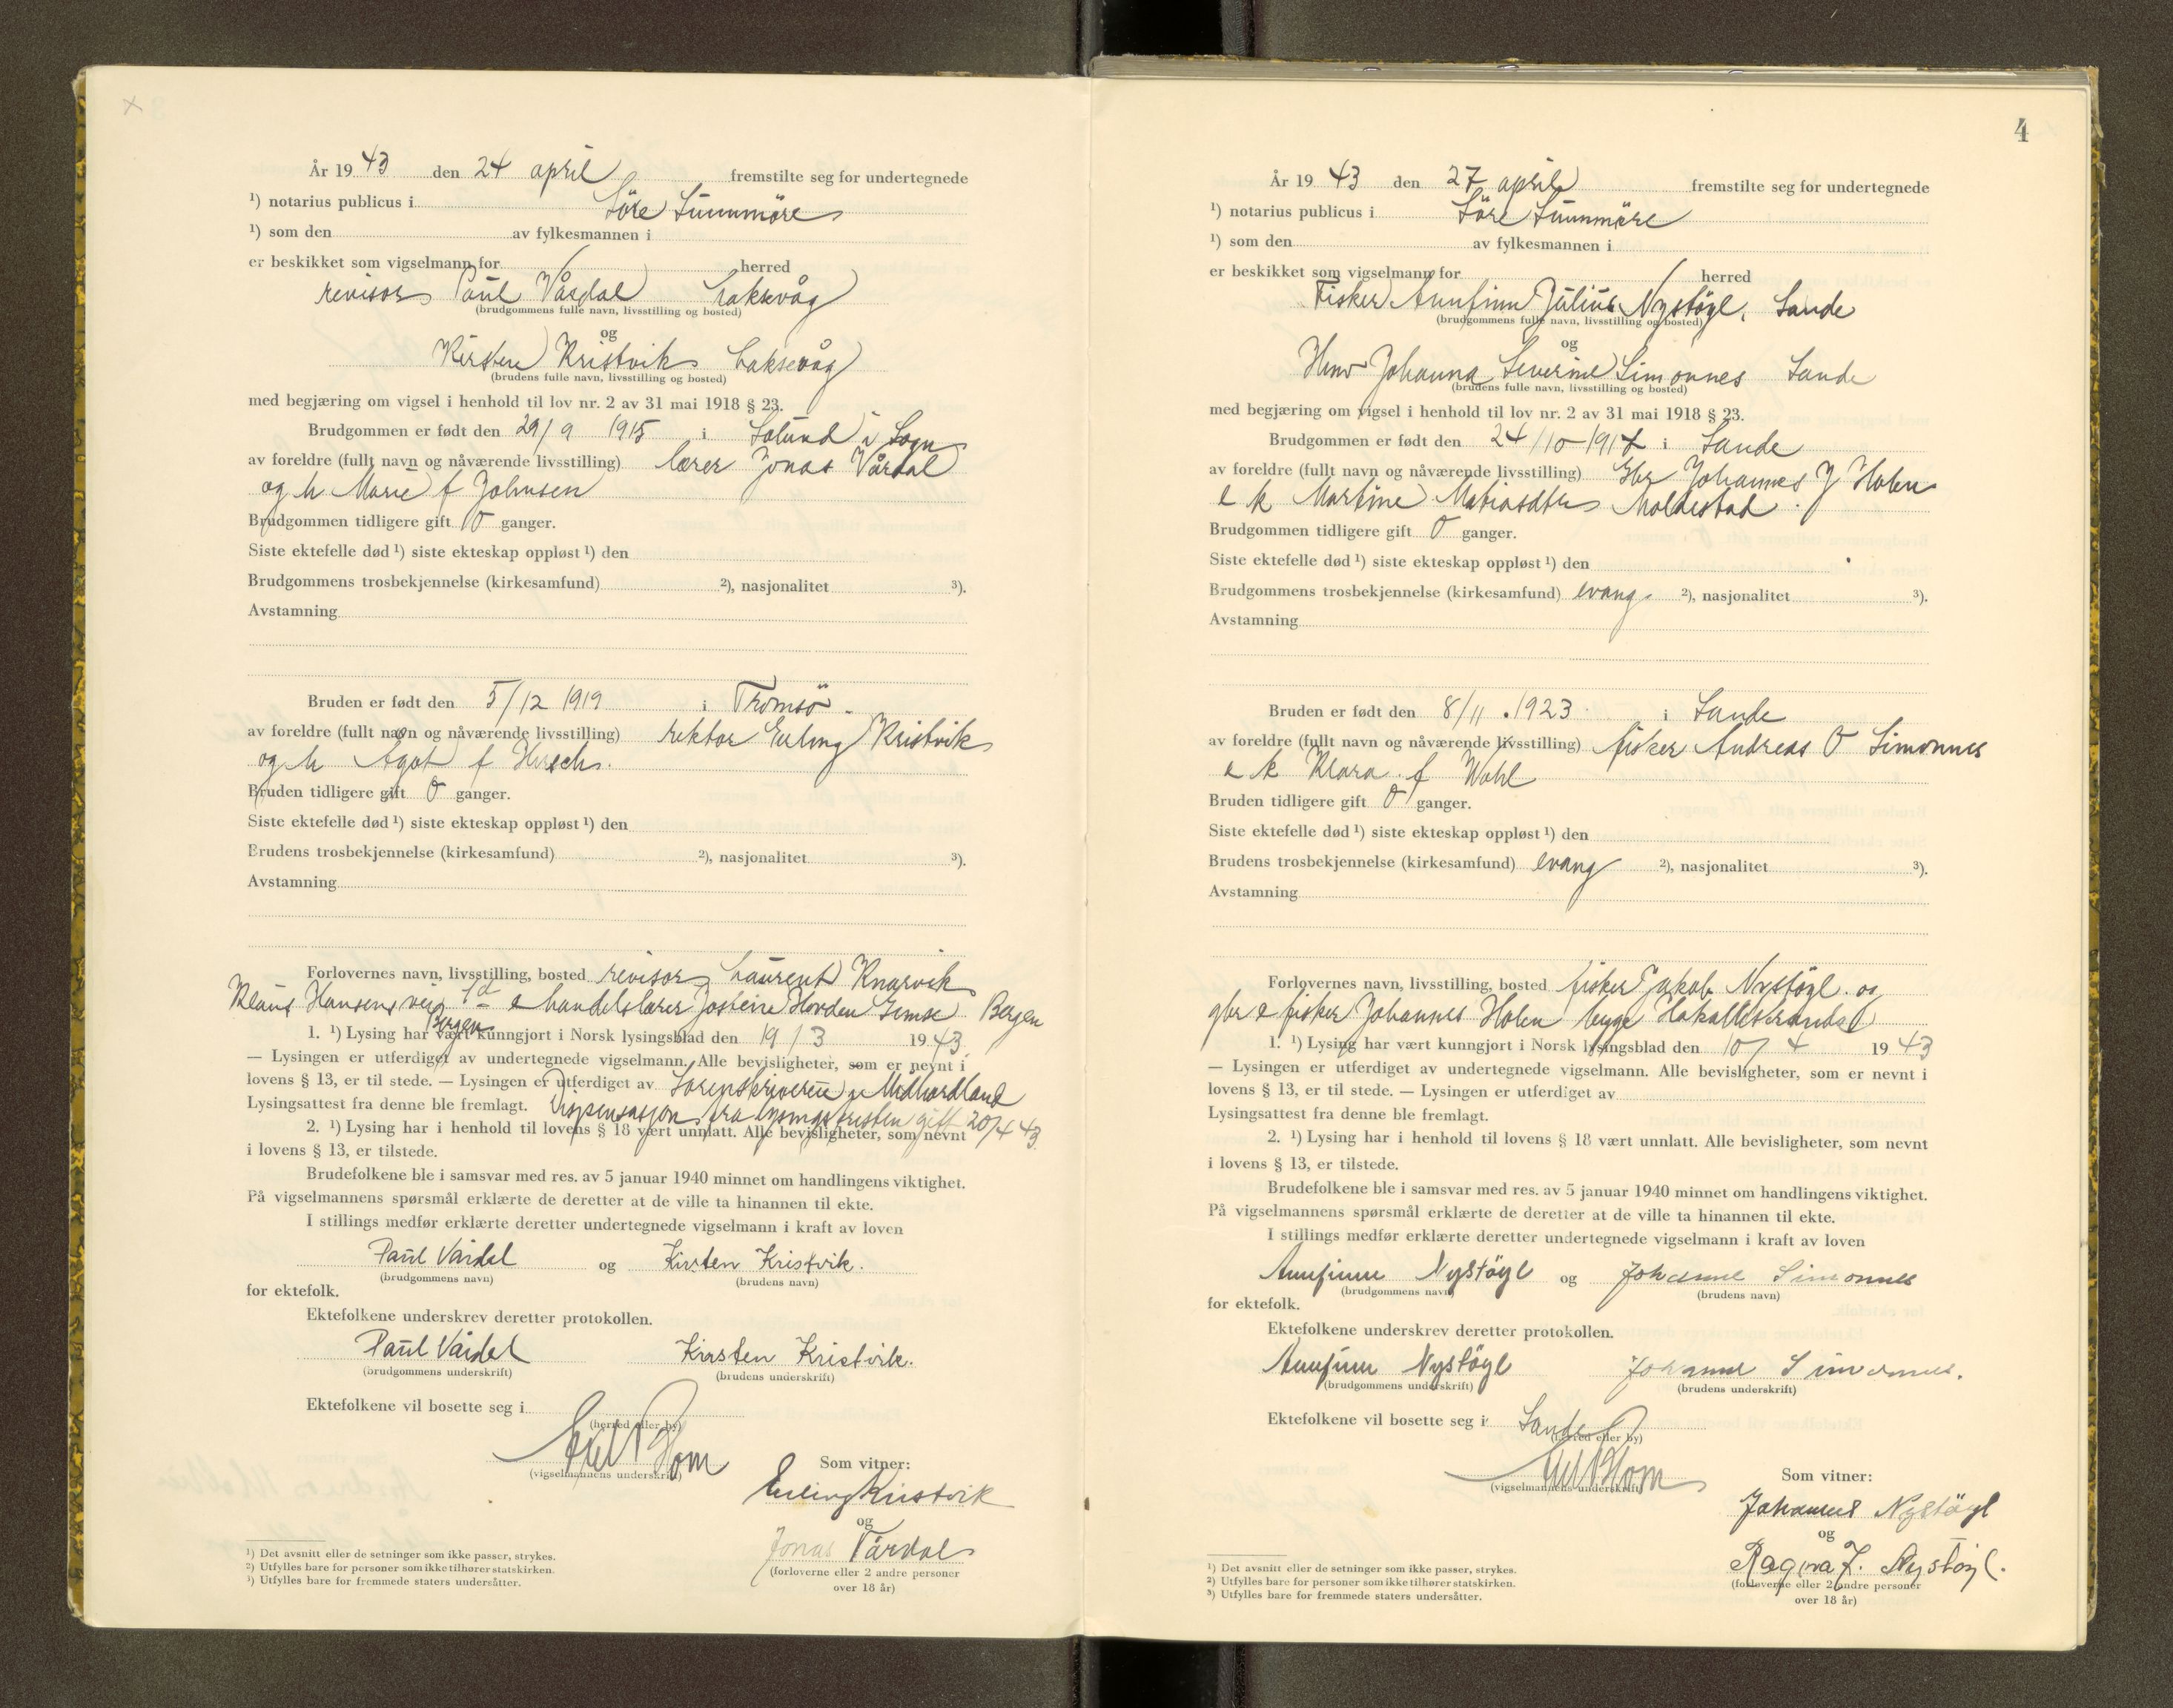 År 1943 den 24 april fremstilte seg for undertegnede
¹) notarius publicus i Söre Sunnmöre
¹) som den av fylkesmannen i
er beskikket som vigselmann for herred
revisor Paul Vårdal Laksevåg
(brudgommens fulle navn, livsstilling og bosted)
og
Kirsten Kristvik Laksevåg
(brudens fulle navn, livsstilling og bosted)
med begjæring om vigsel i henhold til lov nr. 2 av 31 mai 1918 § 23.
Brudgommen er født den 29/9 1915 i Solund i Sogn
av foreldre (fullt navn og nåværende livsstilling) lærer Jonas Vårdal
og h Marie f Johnsen
Brudgommen tidligere gift 0 ganger.
Siste ektefelle død ¹) siste ekteskap oppløst ¹) den
Brudgommens trosbekjennelse (kirkesamfund) ²), nasjonalitet ³).
Avstamning
Bruden er født den 5/12 1919 i Tromsö.
av foreldre (fullt navn og nåværende livsstilling) rektor Erling Kristvik
og h Agot f Hirsch.
Bruden tidligere gift 0 ganger.
Siste ektefelle død ¹) siste ekteskap oppløst ¹) den
Brudens trosbekjennelse (kirkesamfund) ²), nasjonalitet ³).
Avstamning
Forlovernes navn, livsstilling, bosted revisor Laurent Knarvik
Klaus Hansens vei handelslærer Jostein Hovden Gimse Bergen
Bergen
1. ¹) Lysing har vært kunngjort i Norsk lysingsblad den 19/3 1943.
— Lysingen er utferdiget av undertegnede vigselmann. Alle bevisligheter, som er nevnt i
lovens § 13, er til stede. — Lysingen er utferdiget av Sorenskriveren i Midhordland
Lysingsattest fra denne ble fremlagt. Dispensasjon fra lysingsfristen gitt 20/4 43.
2. ¹) Lysing har i henhold til lovens § 18 vært unnlatt. Alle bevisligheter, som nevnt
i lovens § 13, er tilstede.
Brudefolkene ble i samsvar med res. av 5 januar 1940 minnet om handlingens viktighet.
På vigselmannens spørsmål erklærte de deretter at de ville ta hinannen til ekte.
I stillings medfør erklærte deretter undertegnede vigselmann i kraft av loven
Paul Vårdal og Kirsten Kristvik.
(brudgommens navn) (brudens navn)
for ektefolk.
Ektefolkene underskrev deretter protokollen.
Paul Vårdal Kirsten Kristvik.
(brudgommens underskrift) (brudens underskrift)
Ektefolkene vil bosette seg i
(herred eller by)
Blom
(vigselmannens underskrift)
Som vitner:
Erling Kristvik
og
Jonas Vårdal
(forloverne eller 2 andre personer
over 18 år)
¹) Det avsnitt eller de setninger som ikke passer, strykes.
²) Utfylles bare for personer som ikke tilhører statskirken.
³) Utfylles bare for fremmede staters undersåtter.
4
År 1943 den 27 april fremstilte seg for undertegnede
¹) notarius publicus i Söre Sunnmöre
¹) som den av fylkesmannen i
er beskikket som vigselmann for herred
Fisker Annfinn Julius Nystöyl, Sande
(brudgommens fulle navn, livsstilling og bosted)
og
Johanna Severine Simonnes Sande
(brudens fulle navn, livsstilling og bosted)
med begjæring om vigsel i henhold til lov nr. 2 av 31 mai 1918 § 23.
Brudgommen er født den 24/10-1917 i Sande
av foreldre (fullt navn og nåværende livsstilling) Gbr Johannes J Holen
e k Martine Matiasdtr Moldestad.
Brudgommen tidligere gift 0 ganger.
Siste ektefelle død ¹) siste ekteskap oppløst ¹) den
Brudgommens trosbekjennelse (kirkesamfund) evang. ²), nasjonalitet ³).
Avstamning
Bruden er født den 8/11.1923 i Sande
av foreldre (fullt navn og nåværende livsstilling) fisker Andreas O Simonnes
e k Klara f Wahl
Bruden tidligere gift 0 ganger.
Siste ektefelle død ¹) siste ekteskap oppløst ¹) den
Brudens trosbekjennelse (kirkesamfund) evang ²), nasjonalitet ³).
Avstamning
Forlovernes navn, livsstilling, bosted fisker Jakob Nystöyl og
gbr e fisker Johannes Holen begge Hakallestranda
1. ¹) Lysing har vært kunngjort i Norsk lysingsblad den 10/4 1943
— Lysingen er utferdiget av undertegnede vigselmann. Alle bevisligheter, som er nevnt i
lovens § 13, er til stede. — Lysingen er utferdiget av
Lysingsattest fra denne ble fremlagt.
2. ¹) Lysing har i henhold til lovens § 18 vært unnlatt. Alle bevisligheter, som nevnt
i lovens § 13, er tilstede.
Brudefolkene ble i samsvar med res. av 5 januar 1940 minnet om handlingens viktighet.
På vigselmannens spørsmål erklærte de deretter at de ville ta hinannen til ekte.
I stillings medfør erklærte deretter undertegnede vigselmann i kraft av loven
Annfinn Nystöyl og Johanne Simonnes
(brudgommens navn) (brudens navn)
for ektefolk.
Ektefolkene underskrev deretter protokollen.
Annfinn Nystöyl Johanne Simonnes.
(brudgommens underskrift) (brudens underskrift)
Ektefolkene vil bosette seg i Sande
(herred eller by)
Blom
(vigselmannens underskrift)
Som vitner:
Johannes Nystöyl
og
Ragna J. Nystöyl.
(forloverne eller 2 andre personer
over 18 år)
¹) Det avsnitt eller de setninger som ikke passer, strykes.
²) Utfylles bare for personer som ikke tilhører statskirken.
³) Utfylles bare for fremmede staters undersåtter.